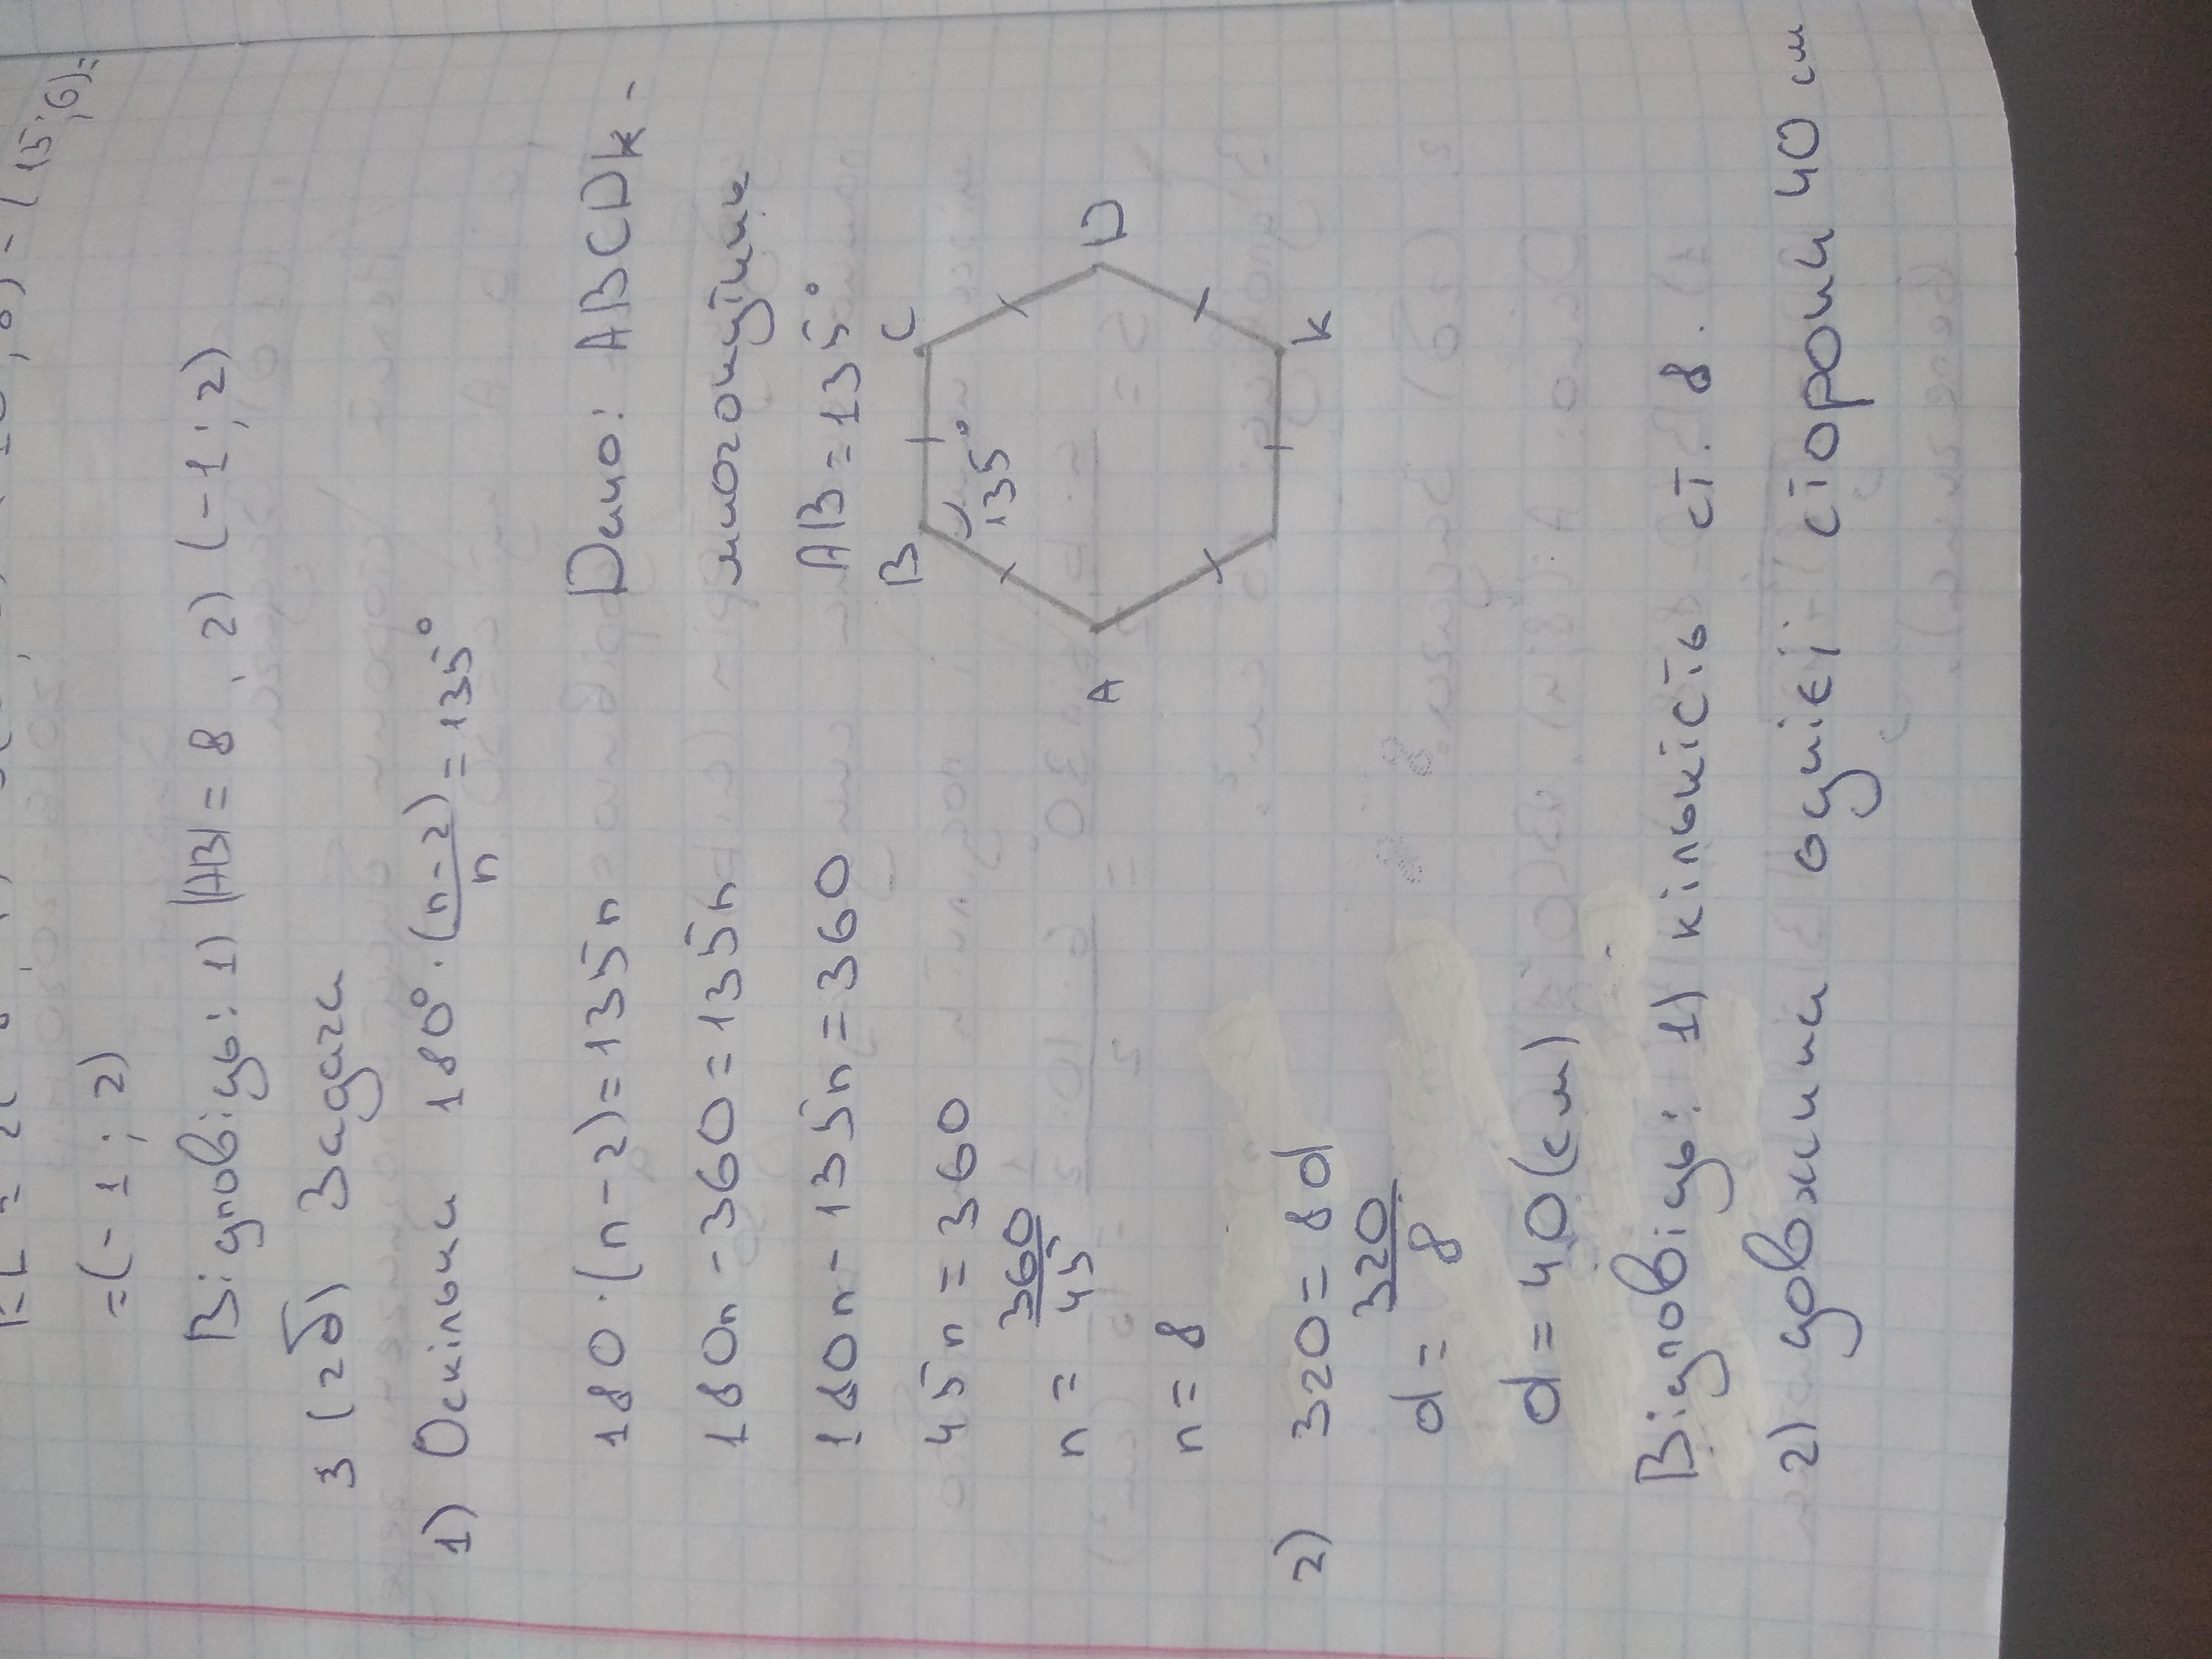 =(-1; 2)
Відповідь: 1) |AB| = 8 , 2) (-1; 2)
3 (2б) Задача
1) Оскільки 180° · (n-2)/n = 135°
180 · (n-2) = 135n
180n - 360 = 135n
180n - 135n = 360
45n = 360
n = 360/45
n = 8
Дано: ABCDK -
многокутник
AB = 135°
B
C
135°
A
D
K
2) 320 = 8d
d = 320/8
d = 40(см)
Відповідь: 1) кількість ст. 8.
2) довжина однієї сторони 40 см